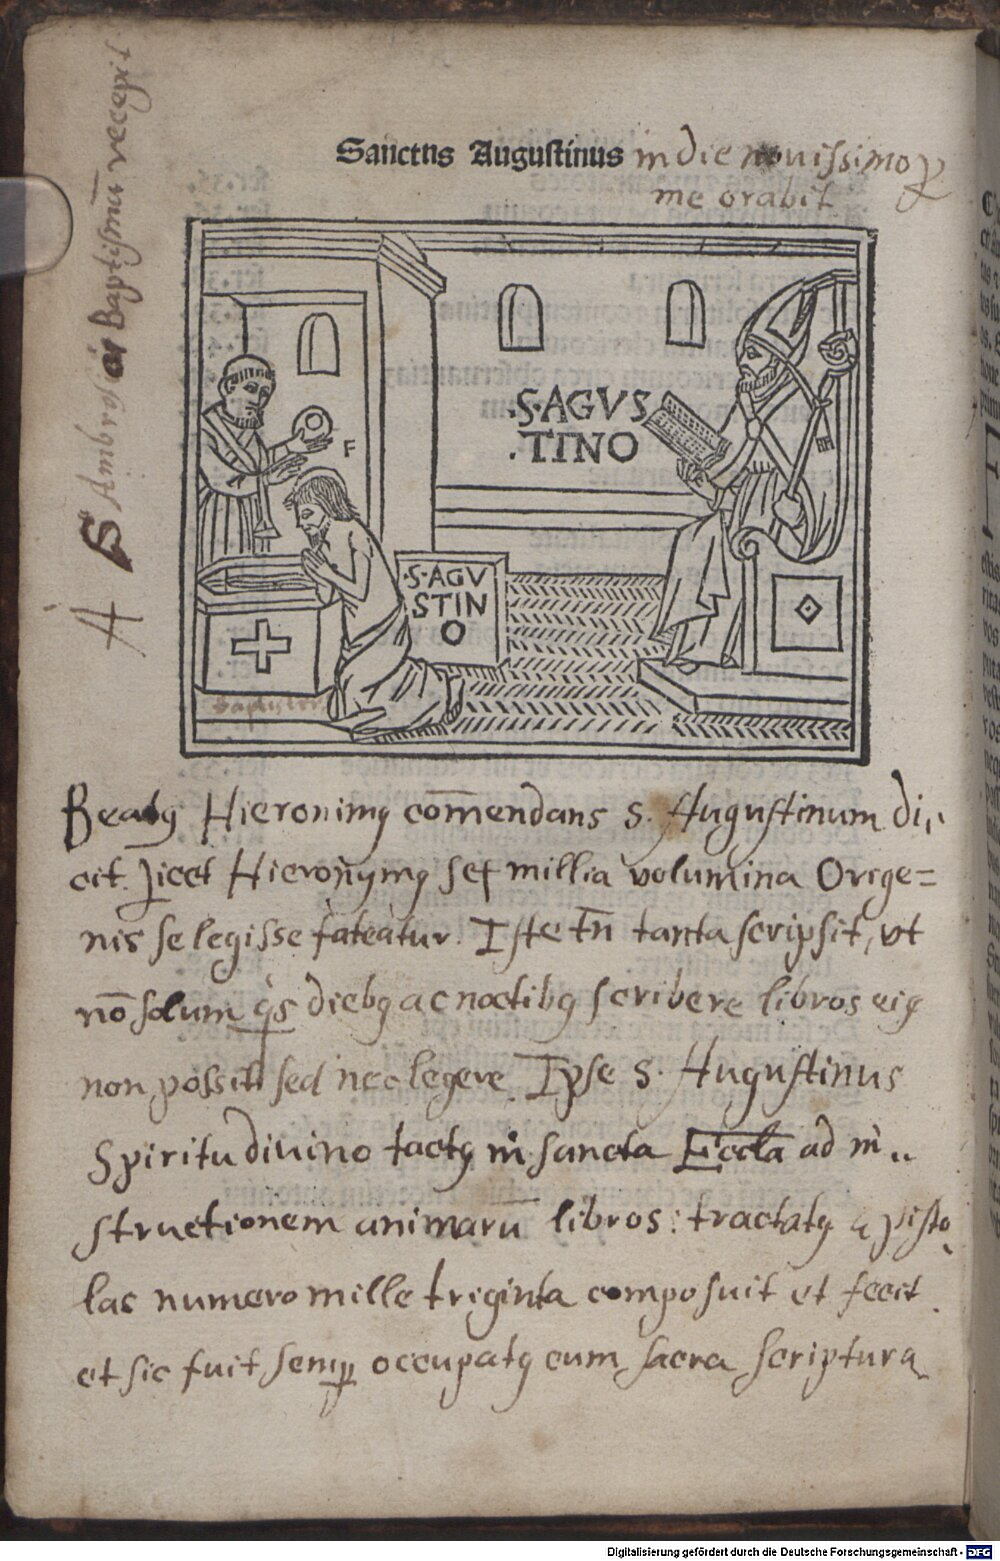 Sanctus Augustinus in die novissimo p
me orabit
A S Ambrosio Baptismū recepit
.S. AGVS
.TINO
F
·S·AGV
STIN
O
Baptister
Beatꝯ Hieronimꝯ com̄endans S. Augustinum di,,
cit. licet Hieronymꝯ sex millia volumina Orige=
nis se legisse fateatur. Iste tn̄ tanta scripsit, vt
nō solum qͥs diebꝯ ac noctibꝯ scribere libros eiꝯ
non possit sed nec legere. Ipse S. Augustinus
Spiritu divino tactꝯ in sancta Eccl̄a ad in,,
structionem animarū libros: tractatꝯ episto,
las numero mille triginta composuit et fecit.
et sic fuit semꝑ occupatꝯ cum sacra scriptura
Digitalisierung gefördert durch die Deutsche Forschungsgemeinschaft - DFG